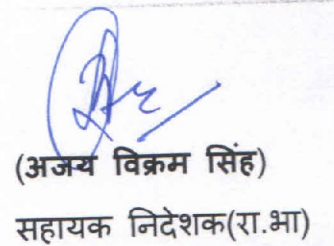 (अजय विक्रम सिंह)
सहायक निदेशक(रा.भा)